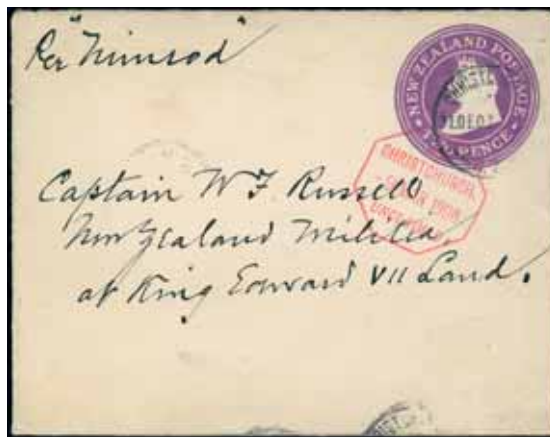 Per "Nimrod"
NEW ZEALAND POSTAGE
TWO PENCE
CHRISTCHURCH,
Captain W F Russell
New Zealand Militia,
at King Edward VII Land.